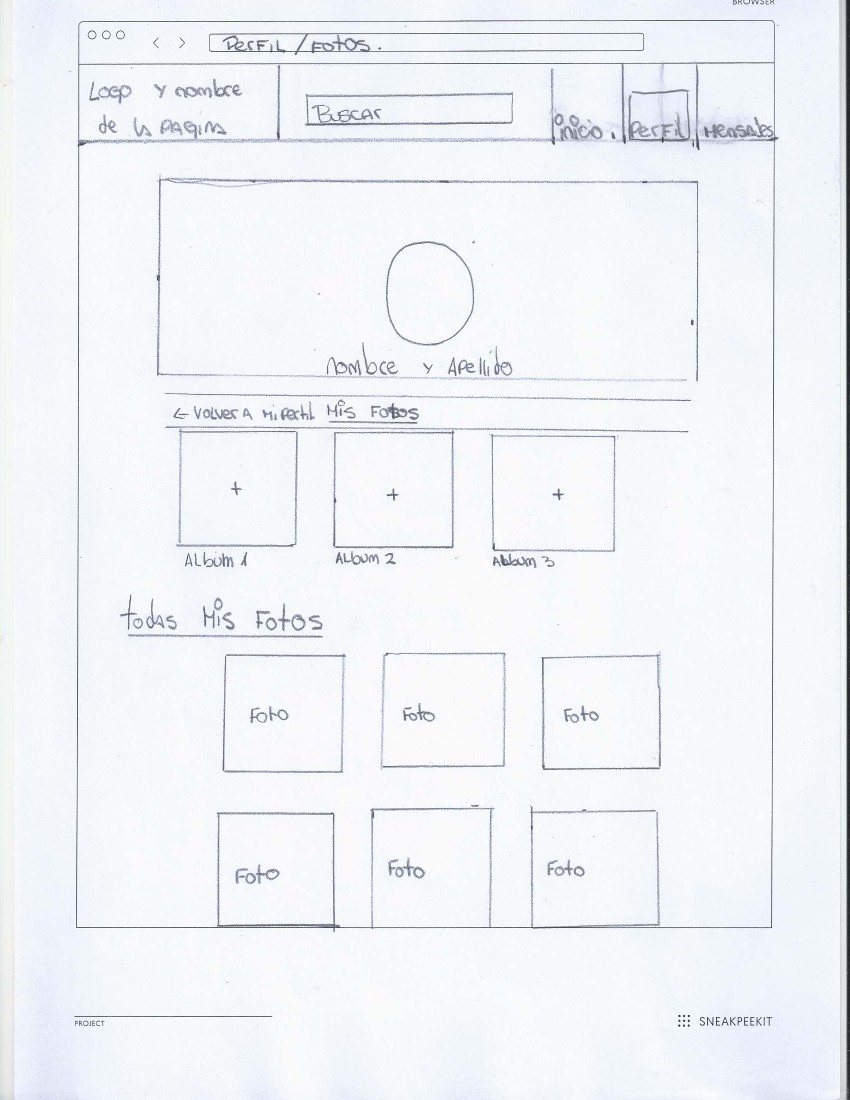 BROWSER
Perfil / Fotos.
Logo y nombre
de la pagina
Buscar
inicio.
Perfil
Mensajes
nombre y Apellido
← Volver a Mi Perfil Mis Fotos
+ + +
Album 1 Album 2 Album 3
todas Mis Fotos
Foto Foto Foto
Foto Foto Foto
PROJECT
SNEAKPEEKIT